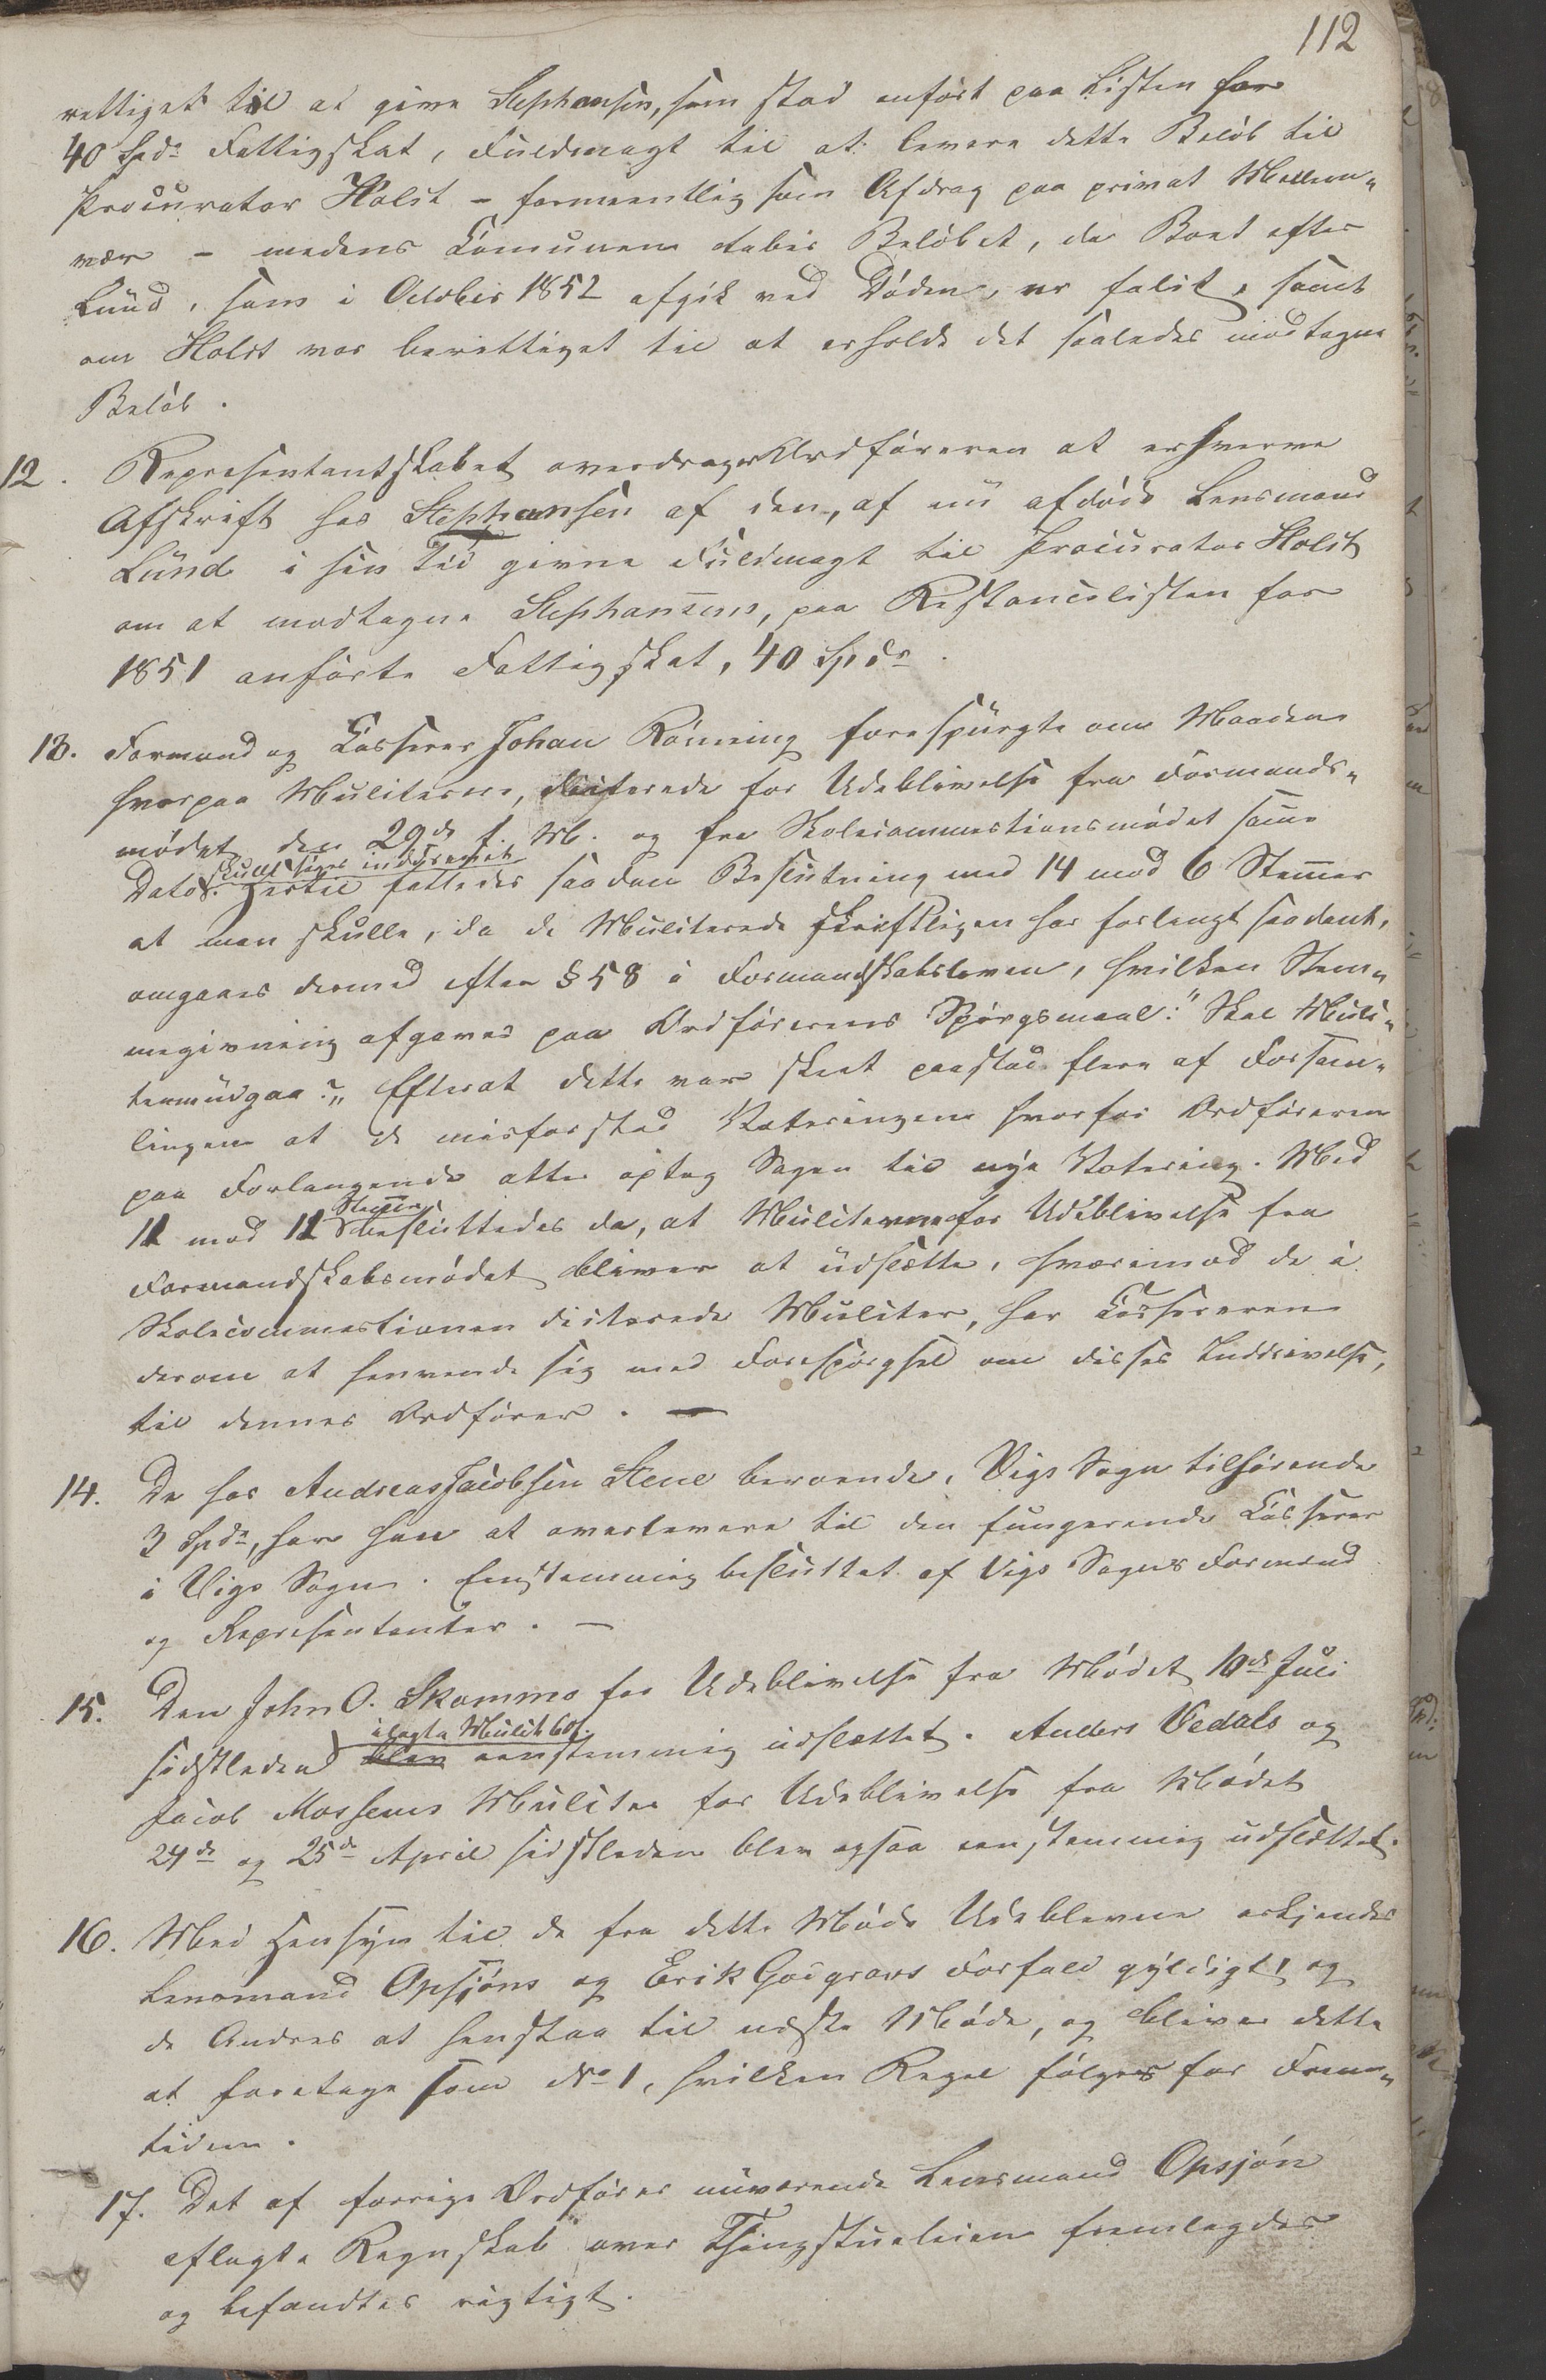 112
rettiget til at give Stephansen, som stod anført paa Listen for
40 Spd. Fattigskat, Fuldmagt til at levere dette Beløb til
Procurator Holst – formeentlig som Afdrag paa privat Mellem„
vær – medens Communen taber Beløbet, da Boet efter
Lund, som i October 1852 afgik ved Døden, er falit, samt
om Holst var berettiget til at erholde det saaledes modtagne
Beløb.
12. Repræsentantskabet overdrager Ordføreren at erhverve
Afskrift hos Stephansen af den, af nu afdøde Lensmand
Lund i sin Tid givne Fuldmagt til Procurator Holst
om at modtage Stephansens, paa Restancelisten for
1851 anførte Fattigskat, 40 Spdr.
13. Formand og Casserer Johan Rønning forespurgte om Maaden
hvorpaa Mulcterne, dicterede for Udeblivelse fra Formands„
mødet den 29de f. M. og fra Skolecommissionsmødet samme
skulle søges inddrevet
Dato. Hertil fattedes saadan Beslutning med 14 mod 6 Stemmer
at man skulle, da de Mulcterede skriftligen har forlangt saadant,
omgaaes dermed efter § 58 i Formandskabsloven, hvilken Stem„
megivning afgaves paa Ordførerens Spørgsmaal: "Skal Mulc„
ten udgaa?„ Efterat dette var skeet paastod flere af Forsam„
lingen at de misforstod Voteringen hvorfor Ordføreren
paa Forlangende atter optog Sagen til nye Votering. Med
Stemmer
11 mod 11 besluttedes da, at Mulcterne for Udeblivelse fra
Formandskabsmødet bliver at udslette, hvorimod de i
Skolecommissionen dicterede Mulcter, har Cassereren
derom at henvende sig med Forespørgsel om disses Inddrivelse,
til dennes Ordfører. —
14. De hos Andreas Jacobsen Stene beroende, Vigs Sogn tilhørende
3 Spdr, har han at overlevere til den fungerende Casserer
i Vigs Sogn. Eenstemmig besluttet af Vigs Sogns Formænd
og Repræsentanter. —
15. Den John O. Skammo for Udeblivelse fra Mødet 10de Juli
ilagte Mulct 60 s.
sidstleden blev eenstemmig udslettet. Anders Vedals og
Jacob Mossens Mulcter for Udeblivelse fra Mødet
24de og 25de April sidstleden blev ogsaa eenstemmig udslettet.
16. Med Hensyn til de fra dette Møde Udeblevne erkjendes
Lensmand Opsjøns og Erik Gaegravs Forfald gyldigt, og
de Andres at henstaa til næste Møde, og bliver dette
at foretage som No 1, hvilken Regel følges for Frem„
tiden.
17. Det af forrige Ordfører nuværende Lensmand Opsjøn
aflagte Regnskab over Thingstueleien fremlagdes
og befandtes rigtigt.